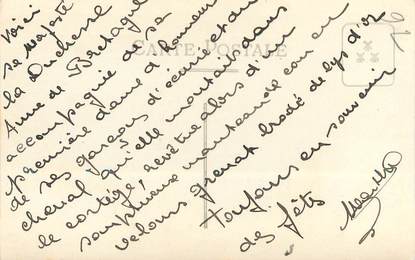 Voici
sa majesté
la Duchesse
Anne de Bretagne
accompagnée de sa
première dame d'honneur
de ses garçons d'écurie et du
cheval qu'elle montait dans
le cortège, revêtue alors d'un
somptueux manteau de cour en
velours grenat brodé de lys d'or
Toujours en souvenir
des fêtes
CARTE POSTALE